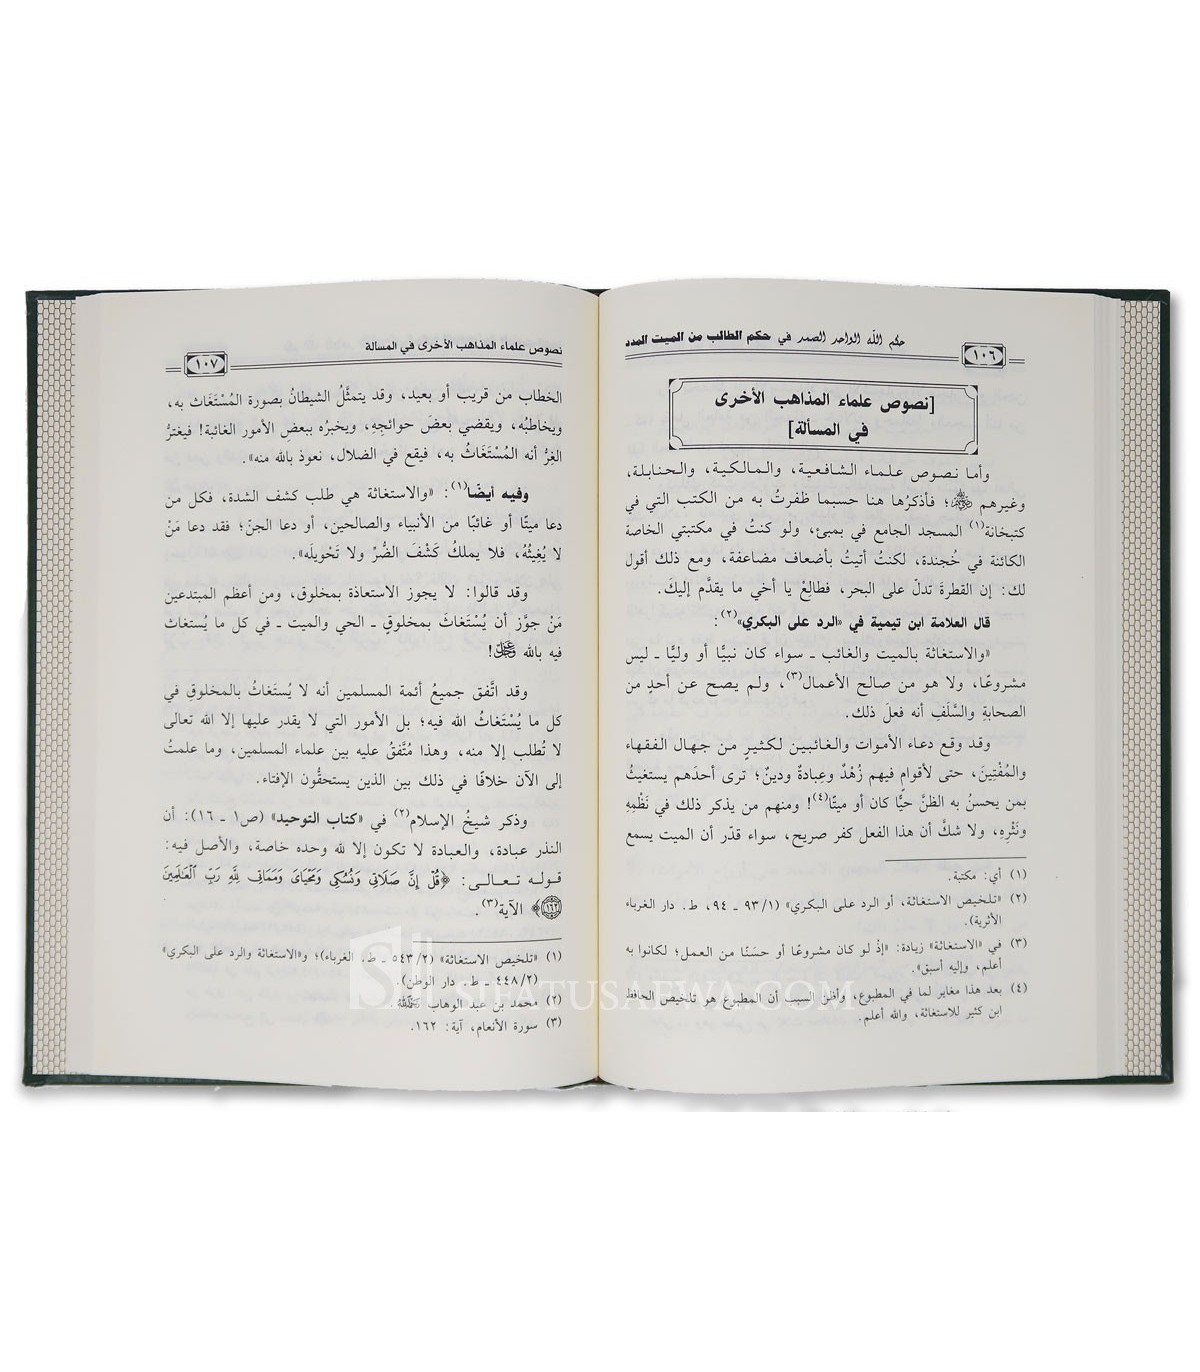 ١٠٦
حكم الله الواحد الصمد في حكم الطالب من الميت المدد
[نصوص علماء المذاهب الأخرى
في المسألة]
وأما نصوص علماء الشافعية، والمالكية، والحنابلة،
وغيرهم ﷺ؛ فأذكرُها هنا حسبما ظفرتُ به من الكتب التي في
كتبخانة(١) المسجد الجامع في بمبئ، ولو كنتُ في مكتبتي الخاصة
الكائنة في خُجندة، لكنتُ أتيتُ بأضعاف مضاعفة، ومع ذلك أقول
لك: إن القطرةَ تدلّ على البحر، فطالِعْ يا أخي ما يقدَّم إليكَ.
قال العلامة ابن تيمية في «الرد على البكري»(٢):
«والاستغاثة بالميت والغائب ـ سواء كان نبيًّا أو وليًّا ـ ليس
مشروعًا، ولا هو من صالح الأعمال(٣)، ولم يصح عن أحدٍ من
الصحابةِ والسَّلَفِ أنه فعلَ ذلك.
وقد وقع دعاء الأموات والغائبين لكثيرٍ من جهال الفقهاء
والمُفْتِينَ، حتى لأقوامٍ فيهم زُهْدٌ وعِبادةٌ ودينٌ؛ ترى أحدَهم يستغيثُ
بمن يحسنُ به الظنَّ حيًّا كان أو ميتًا(٤)! ومنهم من يذكر ذلك في نَظْمِهِ
ونَثْرِه، ولا شكَّ أن هذا الفعل كفر صريح، سواء قدّر أن الميت يسمع
(١) أي: مكتبة.
(٢) «تلخيص الاستغاثة، أو الرد على البكري» (٩٣/١ ـ ٩٤، ط. دار الغرباء
الأثرية).
(٣) في «الاستغاثة» زيادة: «إذْ لو كان مشروعًا أو حسَنًا من العمل؛ لكانوا به
أعلم، وإليه أسبق».
(٤) بعد هذا مغاير لما في المطبوع، وأظن السبب أن المطبوع هو تلخيص الحافظ
ابن كثير للاستغاثة، والله أعلم.
نصوص علماء المذاهب الأخرى في المسألة
١٠٧
الخطاب من قريب أو بعيد، وقد يتمثَّلُ الشيطانُ بصورة المُسْتَغَاث به،
ويخاطبُه، ويقضي بعضَ حوائجِهِ، ويخبرُه ببعضِ الأمور الغائبة! فيغترُّ
الغِرُّ أنه المُسْتَغَاثُ به، فيقع في الضلال، نعوذ بالله منه».
وفيه أيضًا(١): «والاستغاثة هي طلب كشف الشدة، فكل من
دعا ميتًا أو غائبًا من الأنبياء والصالحين، أو دعا الجنّ؛ فقد دعا مَنْ
لا يُغِيثُهُ، فلا يملكُ كَشْفَ الضُّرِّ ولا تَحْويلَه».
وقد قالوا: لا يجوز الاستعاذة بمخلوق، ومن أعظم المبتدعين
مَنْ جوَّز أن يُسْتَغاثَ بمخلوقٍ ـ الحي والميت ـ في كل ما يُستغاث
فيه بالله ﷻ!
وقد اتَّفق جميعُ أئمة المسلمين أنه لا يُستَغاثُ بالمخلوقِ في
كل ما يُسْتَغاثُ الله فيه؛ بل الأمور التي لا يقدر عليها إلا الله تعالى
لا تُطلب إلا منه، وهذا مُتَّفقُ عليه بين علماء المسلمين، وما علمتُ
إلى الآن خلافًا في ذلك بين الذين يستحقُّون الإفتاء.
وذكر شيخُ الإسلام(٢) في «كتاب التوحيد» (ص١ ـ ١٦): أن
النذر عبادة، والعبادة لا تكون إلا لله وحده خاصة، والأصل فيه:
قوله تعالى: ﴿قُلْ إِنَّ صَلَاتِي وَنُسُكِي وَمَحْيَايَ وَمَمَاتِي لِلَّهِ رَبِّ الْعَالَمِينَ
١٦٢﴾ الآية(٣).
(١) «تلخيص الاستغاثة» (٥٤٣/٢ ـ ط. الغرباء)؛ و«الاستغاثة والرد على البكري»
(٤٤٨/٢ ـ ط. دار الوطن).
(٢) محمد بن عبد الوهاب رَحِمَهُ اللهُ.
(٣) سورة الأنعام، آية: ١٦٢.
SIFATUSAFWA.COM